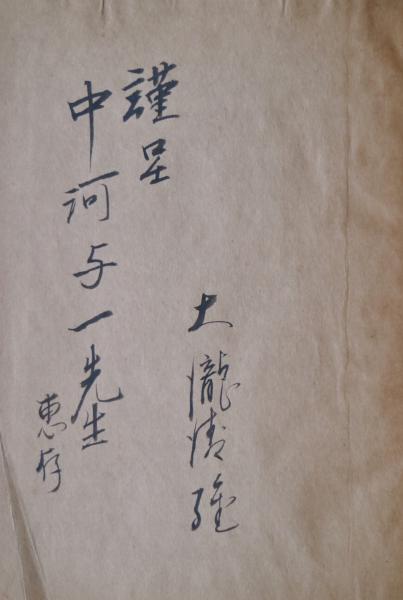 大瀧清雄
謹呈
中河与一先生
惠存